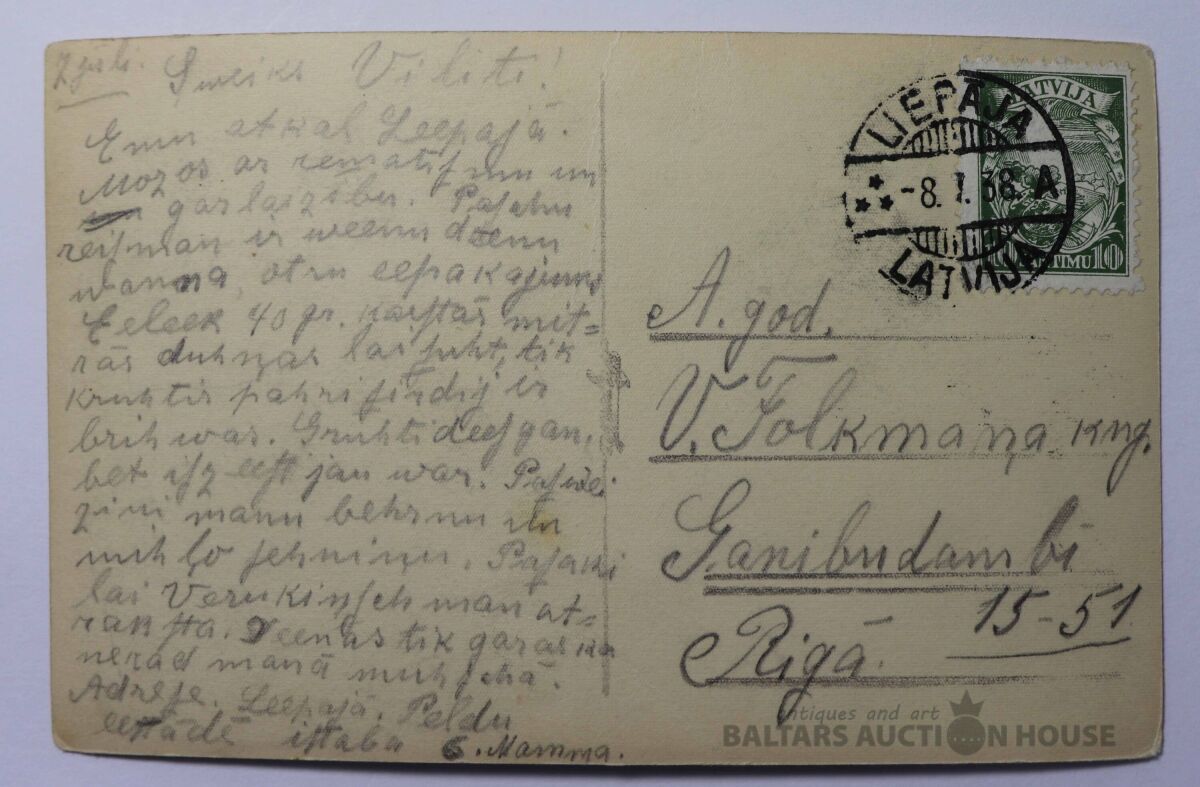 7 jūli.
Sweiks Viliti!
Emu atkal Leepajā.
Mozos ar rematismu un
garlaizibu. Paschu
reis man ir weenu deenu
wanna, otru eepakajums
Eeleek 40 gr. karstās mit=
rās duhņas lai suht, tik
kruhtis pahri sirdij ir
brihwas. Gruhti deesgan,
bet isz eest jau war. Paswei
zini manu behrnu un
mihļo sehniņu. Pasaki
lai Verukinsch man at=
raksta. Deenas tik garas ka
nerad manā muhschā.
Adrese. Leepajā. Peldu
eestādē istaba 6. Mamma.
LIEPĀJA
-8. 7. 38. A
LATVIJA
LATVIJA
SANTIMU 10
A. god.
V. Folkmaņa kng.
Ganibudambi
15-51.
Rigā.
antiques and art
BALTARS AUCTION HOUSE